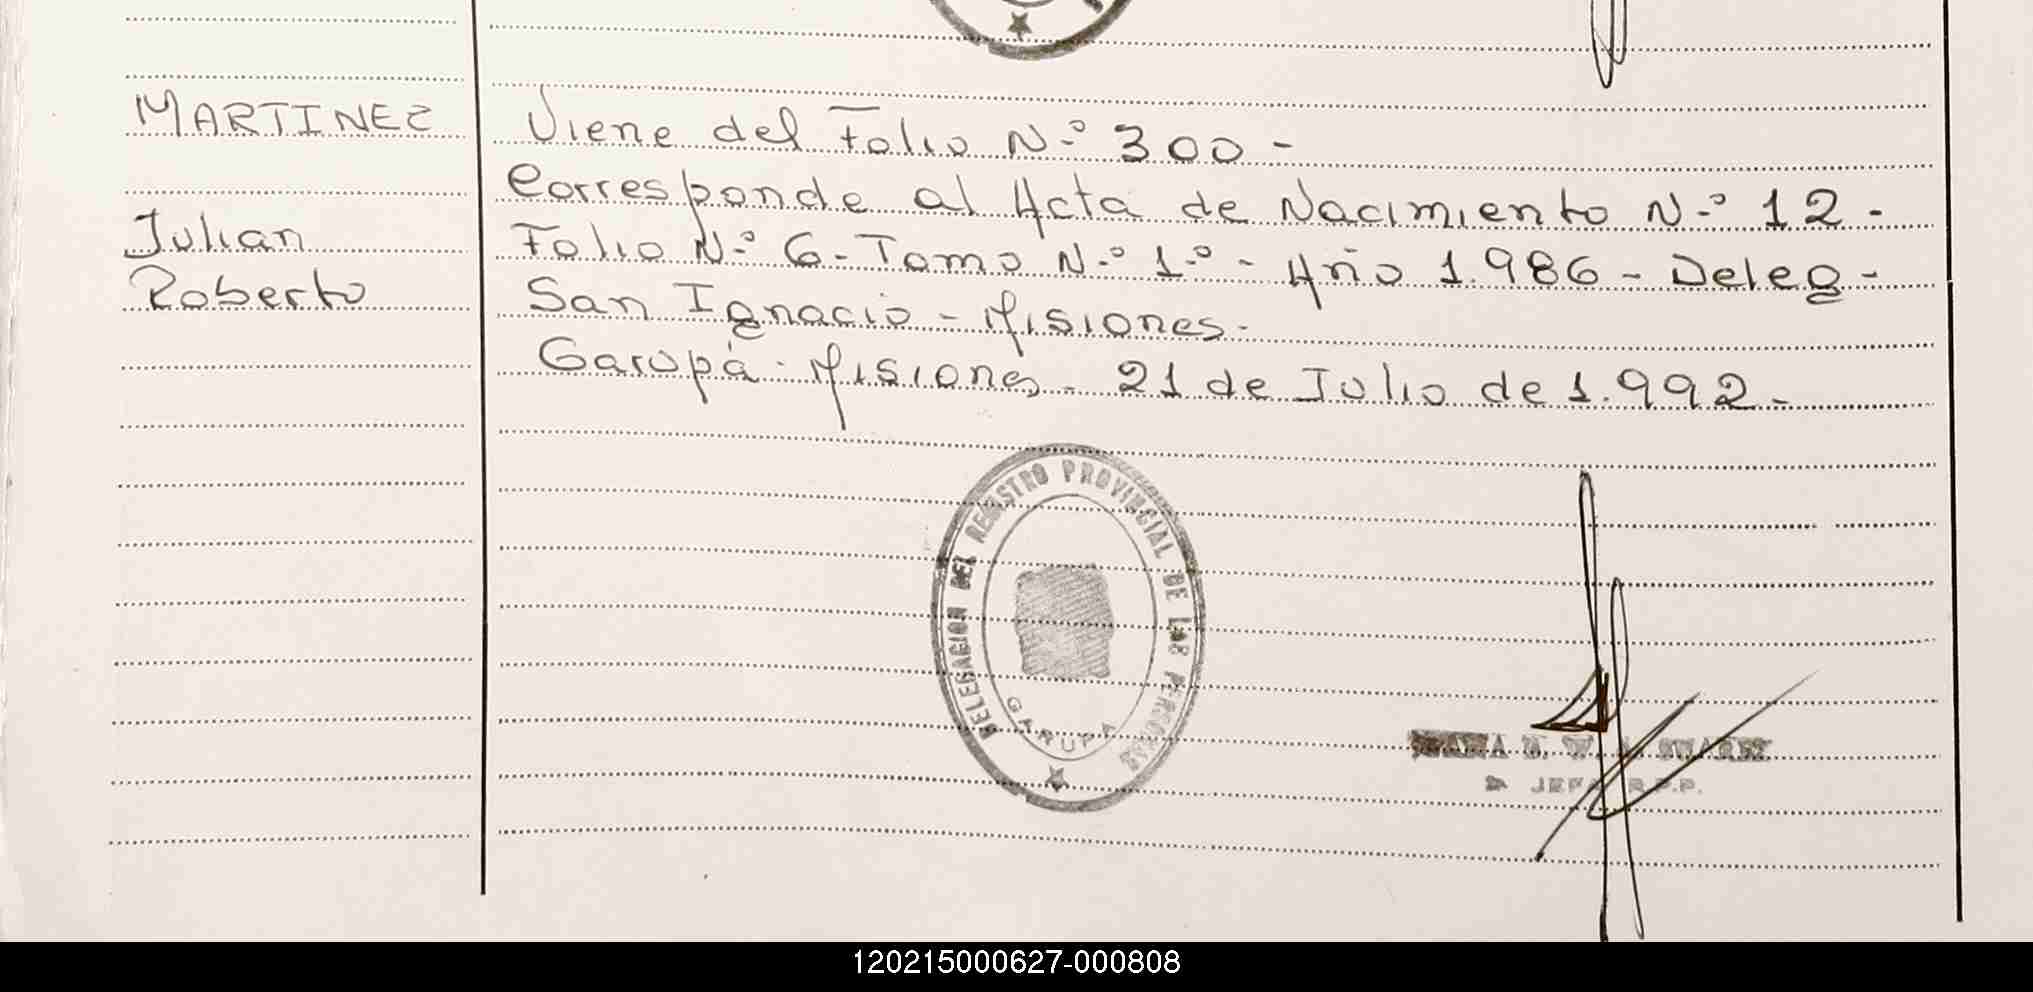 MARTINEZ
Julian
Roberto
Viene del Folio N.º 300 -
Corresponde al Acta de Nacimiento N.º 12 -
Folio N.º 6 - Tomo N.º 1.º - Año 1.986 - Deleg -
San Ignacio - Misiones.
Garupá - Misiones - 21 de Julio de 1.992 -
DELEGACION DEL REGISTRO PROVINCIAL DE LAS PERSONAS
GARUPA
SUAREZ
JEFA R.P.P.
120215000627-000808